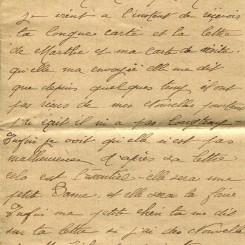 Je vient a l'instant de recevoir
la longue carte et la lettre
de Marthe et ma carte de visite
qu'elle ma envoyée elle me dit
que depuis quelques temp ils ont
pas recus de mes nouvelles pourtant
j'ai écrit il n'a pas longtemp
Enfin je voit qu'elle n'est pas
malheureuse d'après sa lettre
cela est elle sera une
petit Dame et elle sera la
Enfin ma petit cheri tu me dit
sur ta lettre si j'ai des nouvelles